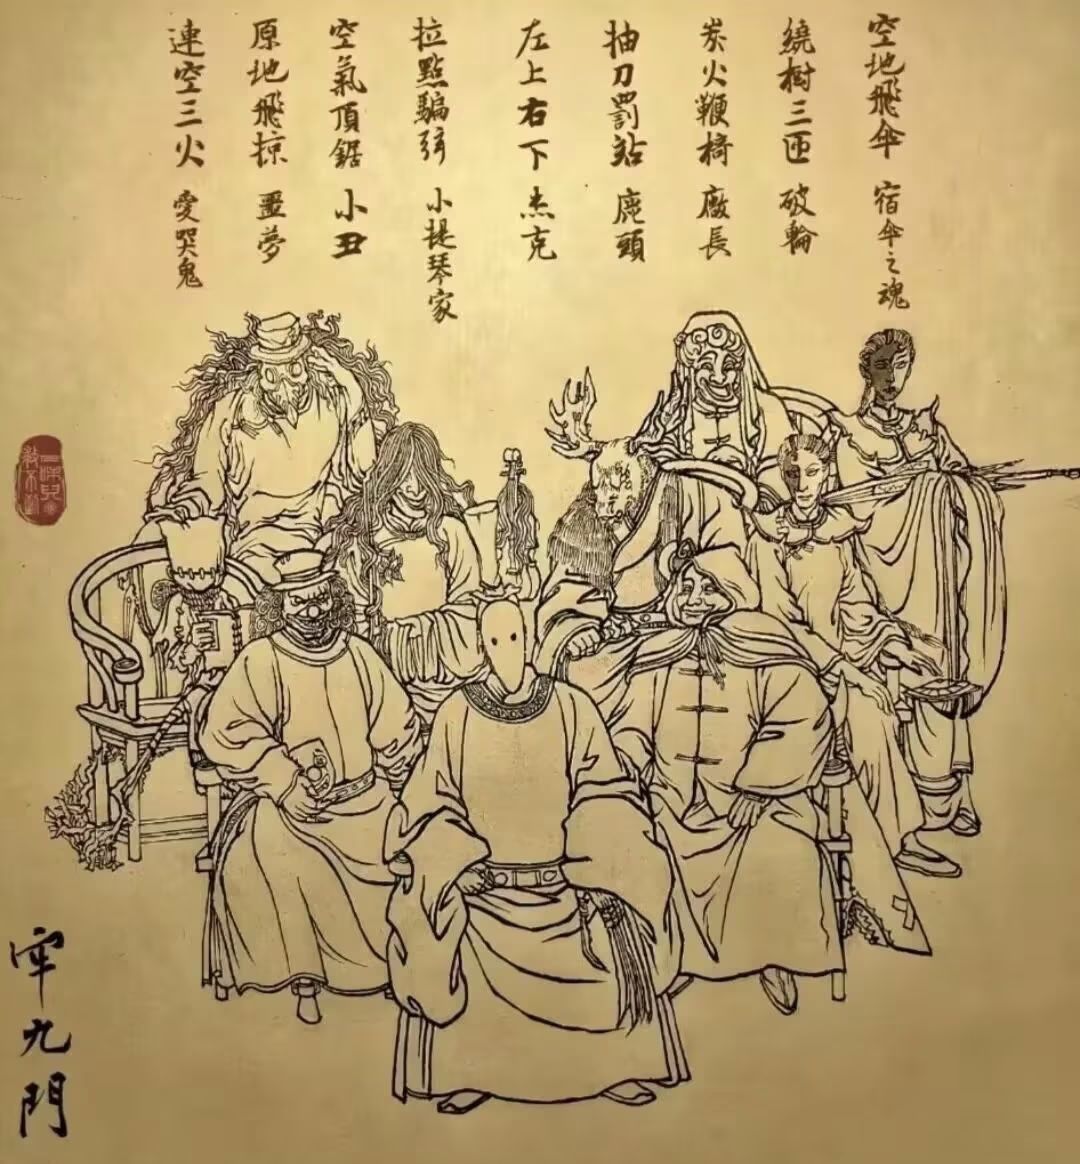 空地飛傘 宿傘之魂
繞樹三匝 破輪
炭火鞭椅 廠長
抽刀罰站 鹿頭
左上右下 杰克
拉點騙弦 小提琴家
空氣頂鋸 小丑
原地飛掠 噩夢
連空三火 愛哭鬼
牢九門